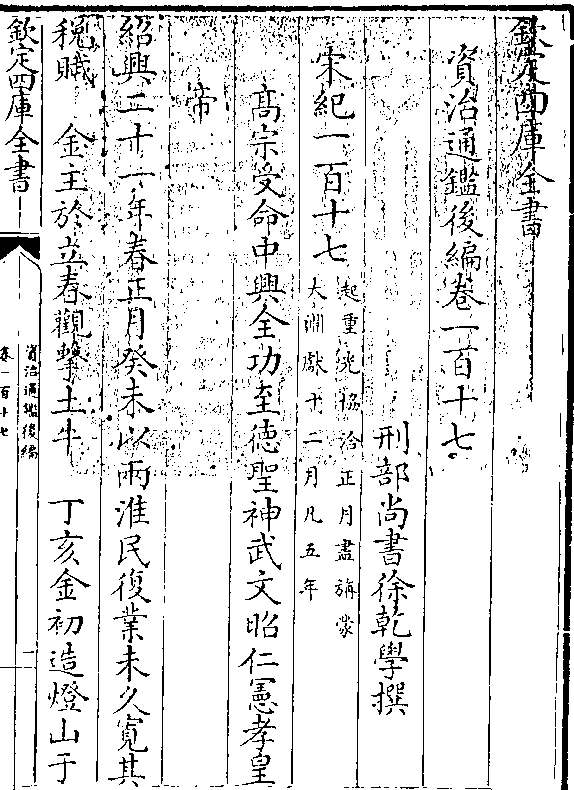 欽定四庫全書
資治通鑑後編卷一百十七
刑部尚書徐乾學撰
宋紀一百十七
起重光協洽正月盡旃蒙
大淵獻十二月凡五年
高宗受命中興全功至德聖神武文昭仁憲孝皇
帝
紹興二十一年春正月癸未以兩淮民復業未久寛其
稅賦 金主於立春觀擊土牛 丁亥金初造燈山于
欽定四庫全書
資治通鑑後編
卷一百十七
一